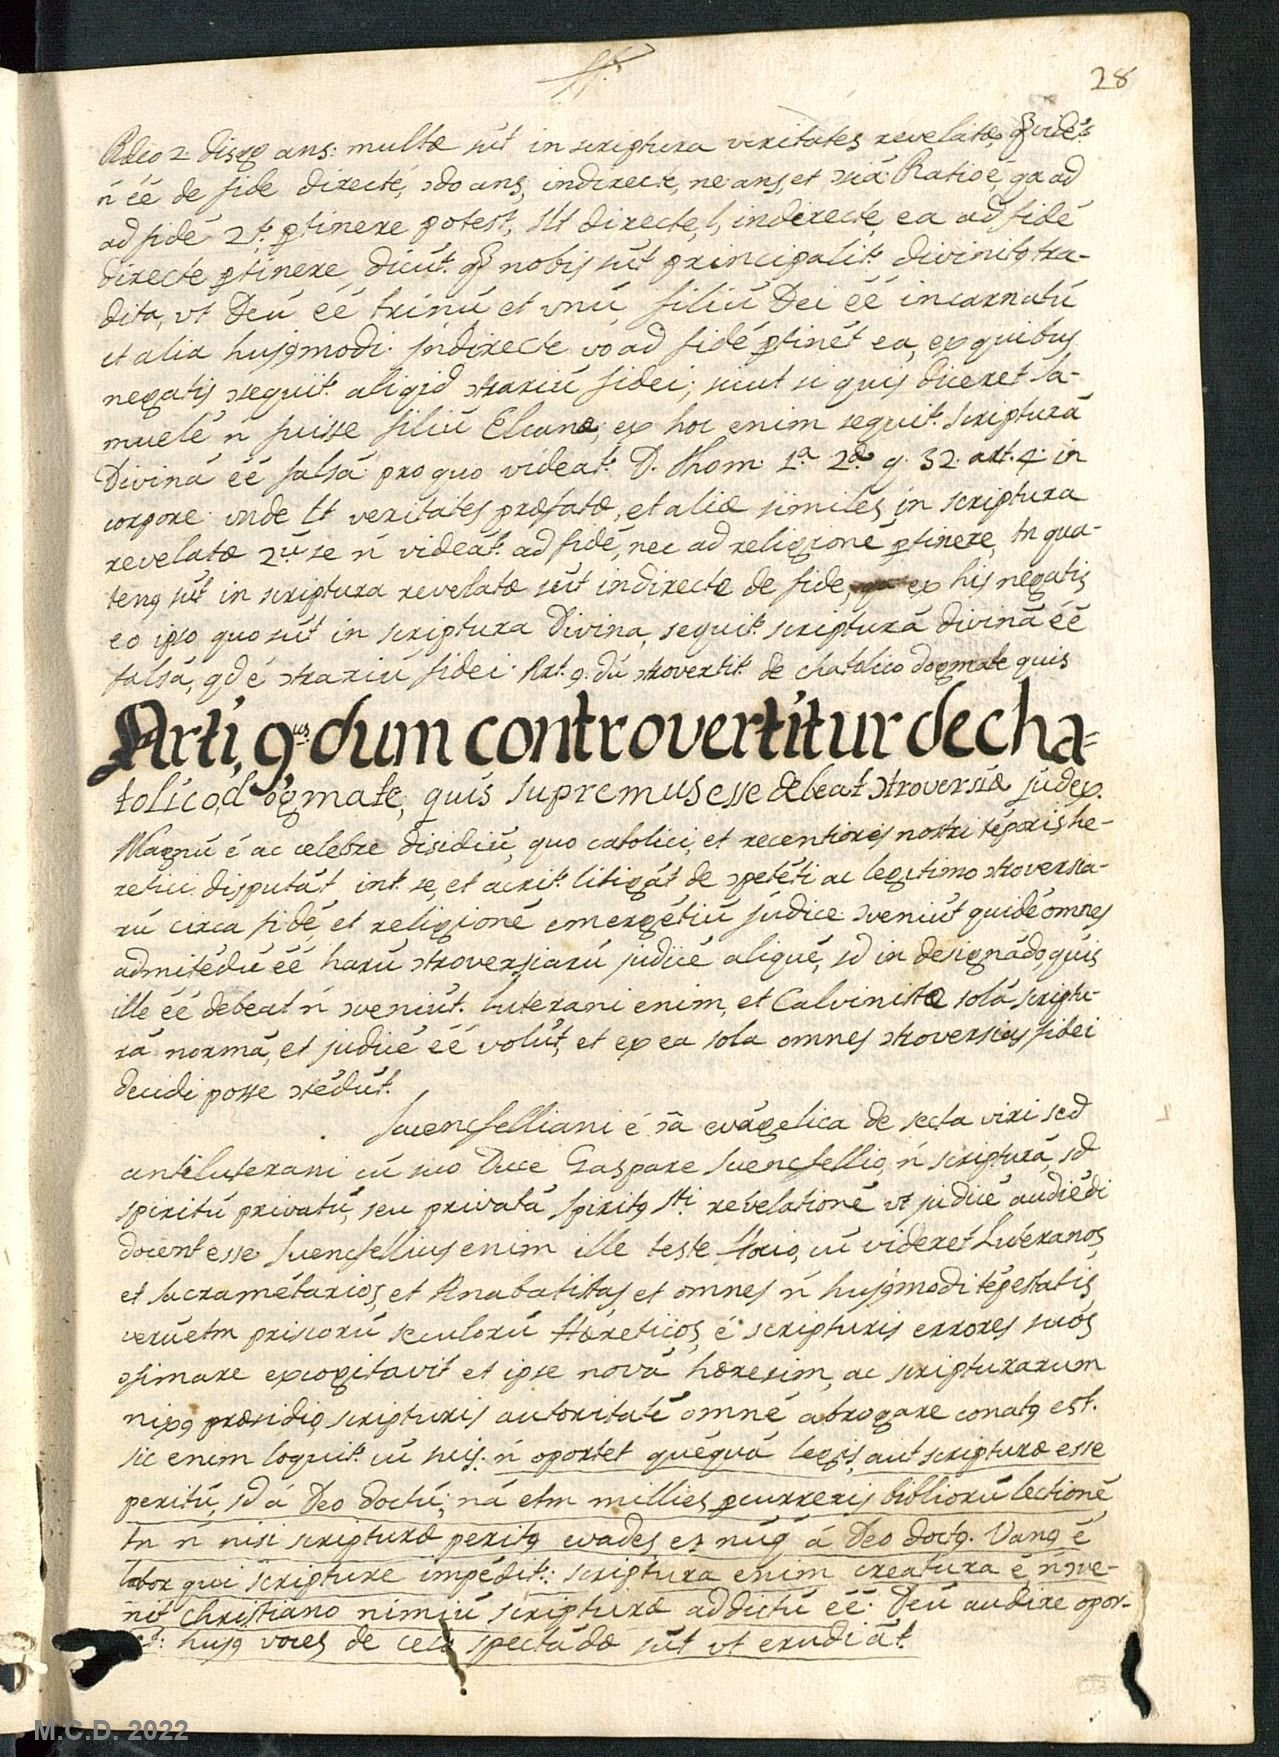 28
Rdeo 2. disgo ans: multæ sūt in scriptura veritates revelatæ, q̄ vidēt.
ñ eē de fide directé, ɔdo ans, indirecte, ne ans, et ɔiā: Ratio ē, qa ad
ad fidē 2.t ptinere potest, slt directe, l, inderecte, ea ad fidē
directe ptinere dicūt. q̄ nobis sūt principalit. divinitq tra-
dita, vt Deū eē trinū et vnū filiū Dei eē incarnatū
et alia hujqmodi: jndirecte vo ad fidē ptinēt ea, ex quibus
negatis ɔseguit. aliqid ɔtrariū fidei; sicut si quis diceret Sa-
muelē ñ fuisse filiū Elcanæ, ex hoc enim seguit. scripturā
Divinā eē falsā: pro quo videat. D. Thom. 1.a 2.æ q. 32. art. 4. in
corpore: vnde lt veritates præfatæ, et aliæ similes in scriptura
revelatæ 2ū se ñ videāt. ad fidē, nec ad religionē ptinere, tn qua-
tenq sūt in scriptura revelatæ sūt indirectæ de fide, ex his negatis
eo ipso quo sūt in scriptura Divina, seguit. scripturā divinā eē
falsā, qd ē ɔtrariū fidei. Art. 9. dū ɔtrovertit. de chatolico dogmate quis
Arti, 9.us dum controvertitur de cha-
tolico, dogmate, quis supremus esse debeat ɔtroversiæ judex.
Magnū ē ac celebre disidiū, quo catolici, et recentiores nostri tēporis he-
retici disputāt int. se, et acrit. litigāt de ɔpetēti ac legitimo ɔtroversia-
rū circa fidē, et religionē emergētiū judice: ɔveniūt quidē omnes
admitēdū eē harū ɔtroversiarū judicē aliquē, sd in designādo, quis
ille eē debeat ñ ɔveniūt. Luterani enim, et Calvinistæ solā scriptu-
rā normā, et judicē eē volūt, et ex ea sola omnes ɔtroversias fidei
decidi posse ɔtēdūt.
Suencfelliani ē ɔā evāgelica de secta viri sed
antiluterani cū suo Duce Gaspare Suēncfellio, ñ scripturā, sd
spiritū privatū, seu privatā Spiritq sti revelationē vt judicē audiēdi
docent esse Suencfellius enim ille teste Hosio, cū videret Luteranos
et Sacramētarios, et Anabatitas, et omnes ñ hujqmodi tēpestatis
verūetm priscorū seculorū Hæreticos, ē scripturis errores suos
ɔfimare excogitavit et ipse novā hæresim, ac scripturarum
nixq præsidiq scripturis autoritatē omnē abrogare conatq est.
sic enim loquit. cū suis: ñ oportet quēquā legis, aut scripturæ esse
peritū, sd á Deo doctū; nā etm millies pcurreris bibliorū lectionē
tn ñ nisi scripturæ peritq evades et nūq á Deo doctq. Vanq ē
labor qui scripture impēdit.: scriptura enim creatura ē ñ ɔve-
nit christiano nimiū scripturæ addictū eē: Deū audire opor-
et: hujq voces de celo spectādæ sūt vt erudiāt.
M.C.D. 2022